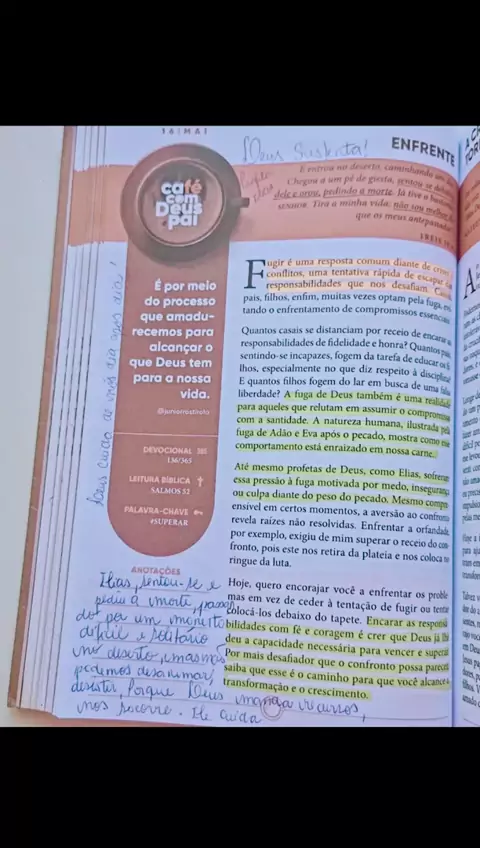 16 | MAI
Deus Sustenta!
ENFRENTE
E entrou no deserto, caminhando um
Chegou a um pé de giesta, sentou-se debaixo
dele e orou, pedindo a morte. Já tive o bastante,
SENHOR. Tira a minha vida; não sou melhor do
que os meus antepassados
1REIS
café
com
Deus
pai
É por meio
do processo
que amadu-
recemos para
alcançar o
que Deus tem
para a nossa
vida.
@juniorrostirola
DEVOCIONAL
136/365
LEITURA BÍBLICA
SALMOS 52
PALAVRA-CHAVE
#SUPERAR
Deus cuida de nós dia após dia!
Fugir é uma resposta comum diante de crises
conflitos, uma tentativa rápida de escapar das
responsabilidades que nos desafiam.
pais, filhos, enfim, muitas vezes optam pela fuga, evi
tando o enfrentamento de compromissos essenciais
Quantos casais se distanciam por receio de encarar as
responsabilidades de fidelidade e honra? Quantos pais,
sentindo-se incapazes, fogem da tarefa de educar os fi
lhos, especialmente no que diz respeito à disciplina?
E quantos filhos fogem do lar em busca de uma falsa
liberdade? A fuga de Deus também é uma realidade
para aqueles que relutam em assumir o compromisso
com a santidade. A natureza humana, ilustrada pela
fuga de Adão e Eva após o pecado, mostra como esse
comportamento está enraizado em nossa carne.
Até mesmo profetas de Deus, como Elias, sofreram
essa pressão à fuga motivada por medo, insegurança
ou culpa diante do peso do pecado. Mesmo compre
ensível em certos momentos, a aversão ao confronto
revela raízes não resolvidas. Enfrentar a orfandade,
por exemplo, exigiu de mim superar o receio do con
fronto, pois este nos retira da plateia e nos coloca no
ringue da luta.
Hoje, quero encorajar você a enfrentar os proble
mas em vez de ceder à tentação de fugir ou tentar
colocá-los debaixo do tapete. Encarar as responsa
bilidades com fé e coragem é crer que Deus já lhe
deu a capacidade necessária para vencer e superar.
Por mais desafiador que o confronto possa parecer,
saiba que esse é o caminho para que você alcance a
transformação e o crescimento.
ANOTAÇÕES
Elias, sentou-se e
pediu a morte, passan
do por um momento
difícil e solitário
no deserto, mas nós
podemos desanimar,
desistir, Porque Deus manda recursos,
nos socorre. Ele cuida